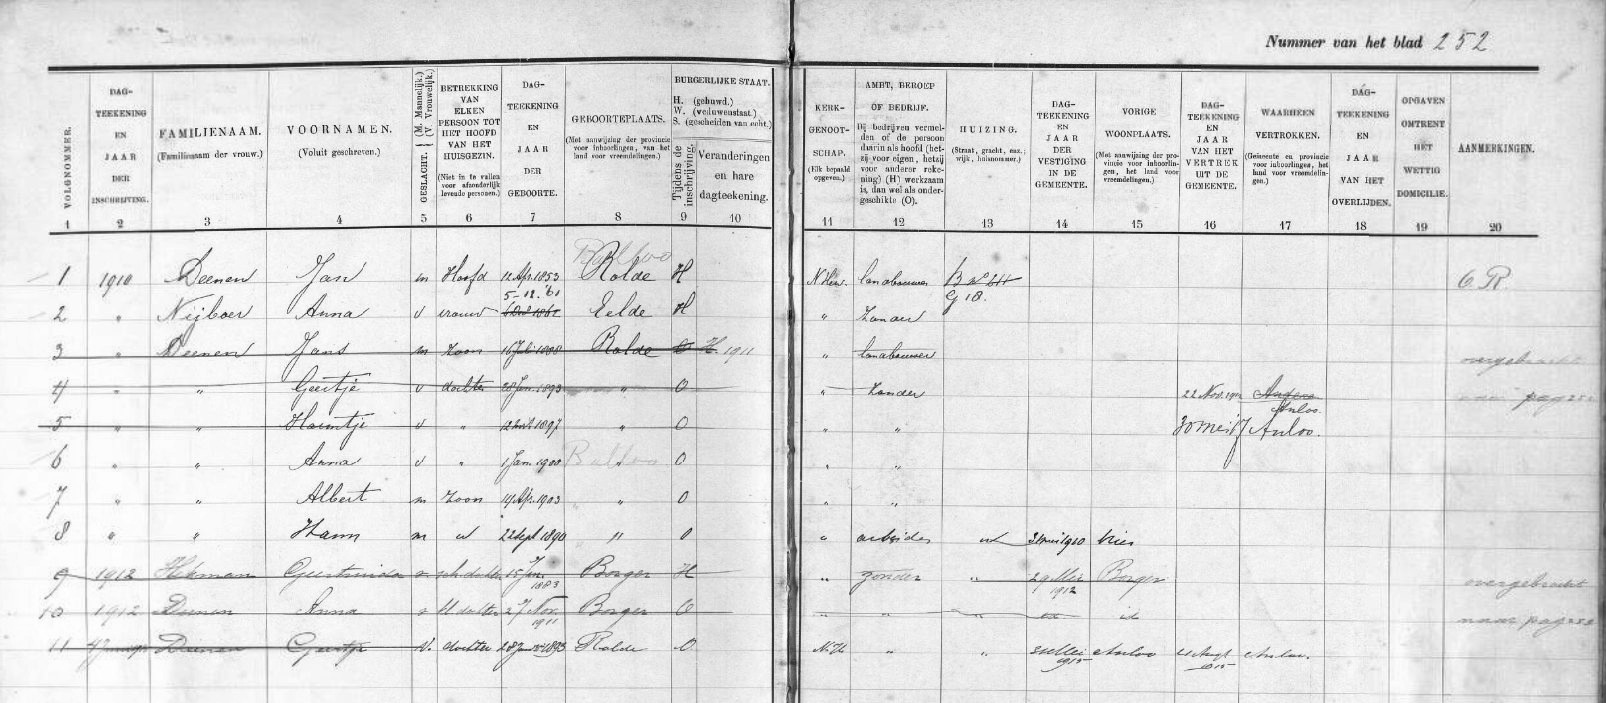 Nummer van het blad 252
VOLGNOMMER. DAG-TEEKENING EN JAAR DER INSCHRIJVING. FAMILIENAAM. (Familienaam der vrouw.) VOORNAMEN. (Voluit geschreven.) GESLACHT. (M. Mannelijk.) (V. Vrouwelijk.) BETREKKING VAN ELKEN PERSOON TOT HET HOOFD VAN HET HUISGEZIN. (Niet in te vullen voor afzonderlijk levende personen.) DAG-TEEKENING EN JAAR DER GEBOORTE. GEBOORTEPLAATS. (Met aanwijzing der provincie voor inboorlingen, van het land voor vreemdelingen.) BURGERLIJKE STAAT. H. (gehuwd.) W. (weduwenstaat.) S. (gescheiden van echt.) Tijdens de inschrijving. Veranderingen en hare dagteekening.
KERK-GENOOT-SCHAP. (Elk bepaald opgeven.) AMBT, BEROEP OF BEDRIJF. Bij bedrijven vermelden of de persoon daarin als hoofd (hetzij voor eigen, hetzij voor anderer rekening) (H) werkzaam is, dan wel als ondergeschikte (O). HUIZING. (Straat, gracht, enz.; wijk, huisnommer.) DAG-TEEKENING EN JAAR DER VESTIGING IN DE GEMEENTE. VORIGE WOONPLAATS. (Met aanwijzing der provincie voor inboorlingen, het land voor vreemdelingen.) DAG-TEEKENING EN JAAR VAN HET VERTREK UIT DE GEMEENTE. WAARHEEN VERTROKKEN. (Gemeente en provincie voor inboorlingen, het land voor vreemdelingen.) DAG-TEEKENING EN JAAR VAN HET OVERLIJDEN. OPGAVEN OMTRENT HET WETTIG DOMICILIE. AANMERKINGEN.
1 2 3 4 5 6 7 8 9 10 11 12 13 14 15 16 17 18 19 20
Balloo
1 1910 Deenen Jan m Hoofd 12 Apr. 1853 Rolde H N Herv. landbouwer G R
5-12.'61 G 18.
2 " Nijboer Anna v vrouw 6 Dec 1861 Eelde H " Zonder
3 " Deenen Jans m Zoon 16 Juli 1888 Rolde O H. 1911 " landbouwer overgebracht
4 " " Geertje v dochter 28 Jan. 1893 " O " Zonder 22 Nov. 1910 naar pag 252
Anloo.
5 " " Harmtje v " 1897 " O " " 30 Mei Anloo.
6 " " Anna v " 1 Jan. 1900 Balloo " O " "
7 " " Albert m Zoon 14 Apr. 1903 " O " "
8 " " Harm m id 22 Sept 1890 " O " arbeider id Mei 1910 Vries
9 1912 Hekman Geertruida v sch. dochter 15 Jan. 1883 Borger H " zonder " 29 Mei 1912 Borger overgebracht
10 1912 Deenen Anna v Kl dochter 27 Nov. 1911 Borger O " " " id naar pag 252
11 Deenen Geertje v. dochter 28 Jan 1893 Rolde O N.H. " " Mei 1915 Anloo Aug 1915 Anloo.